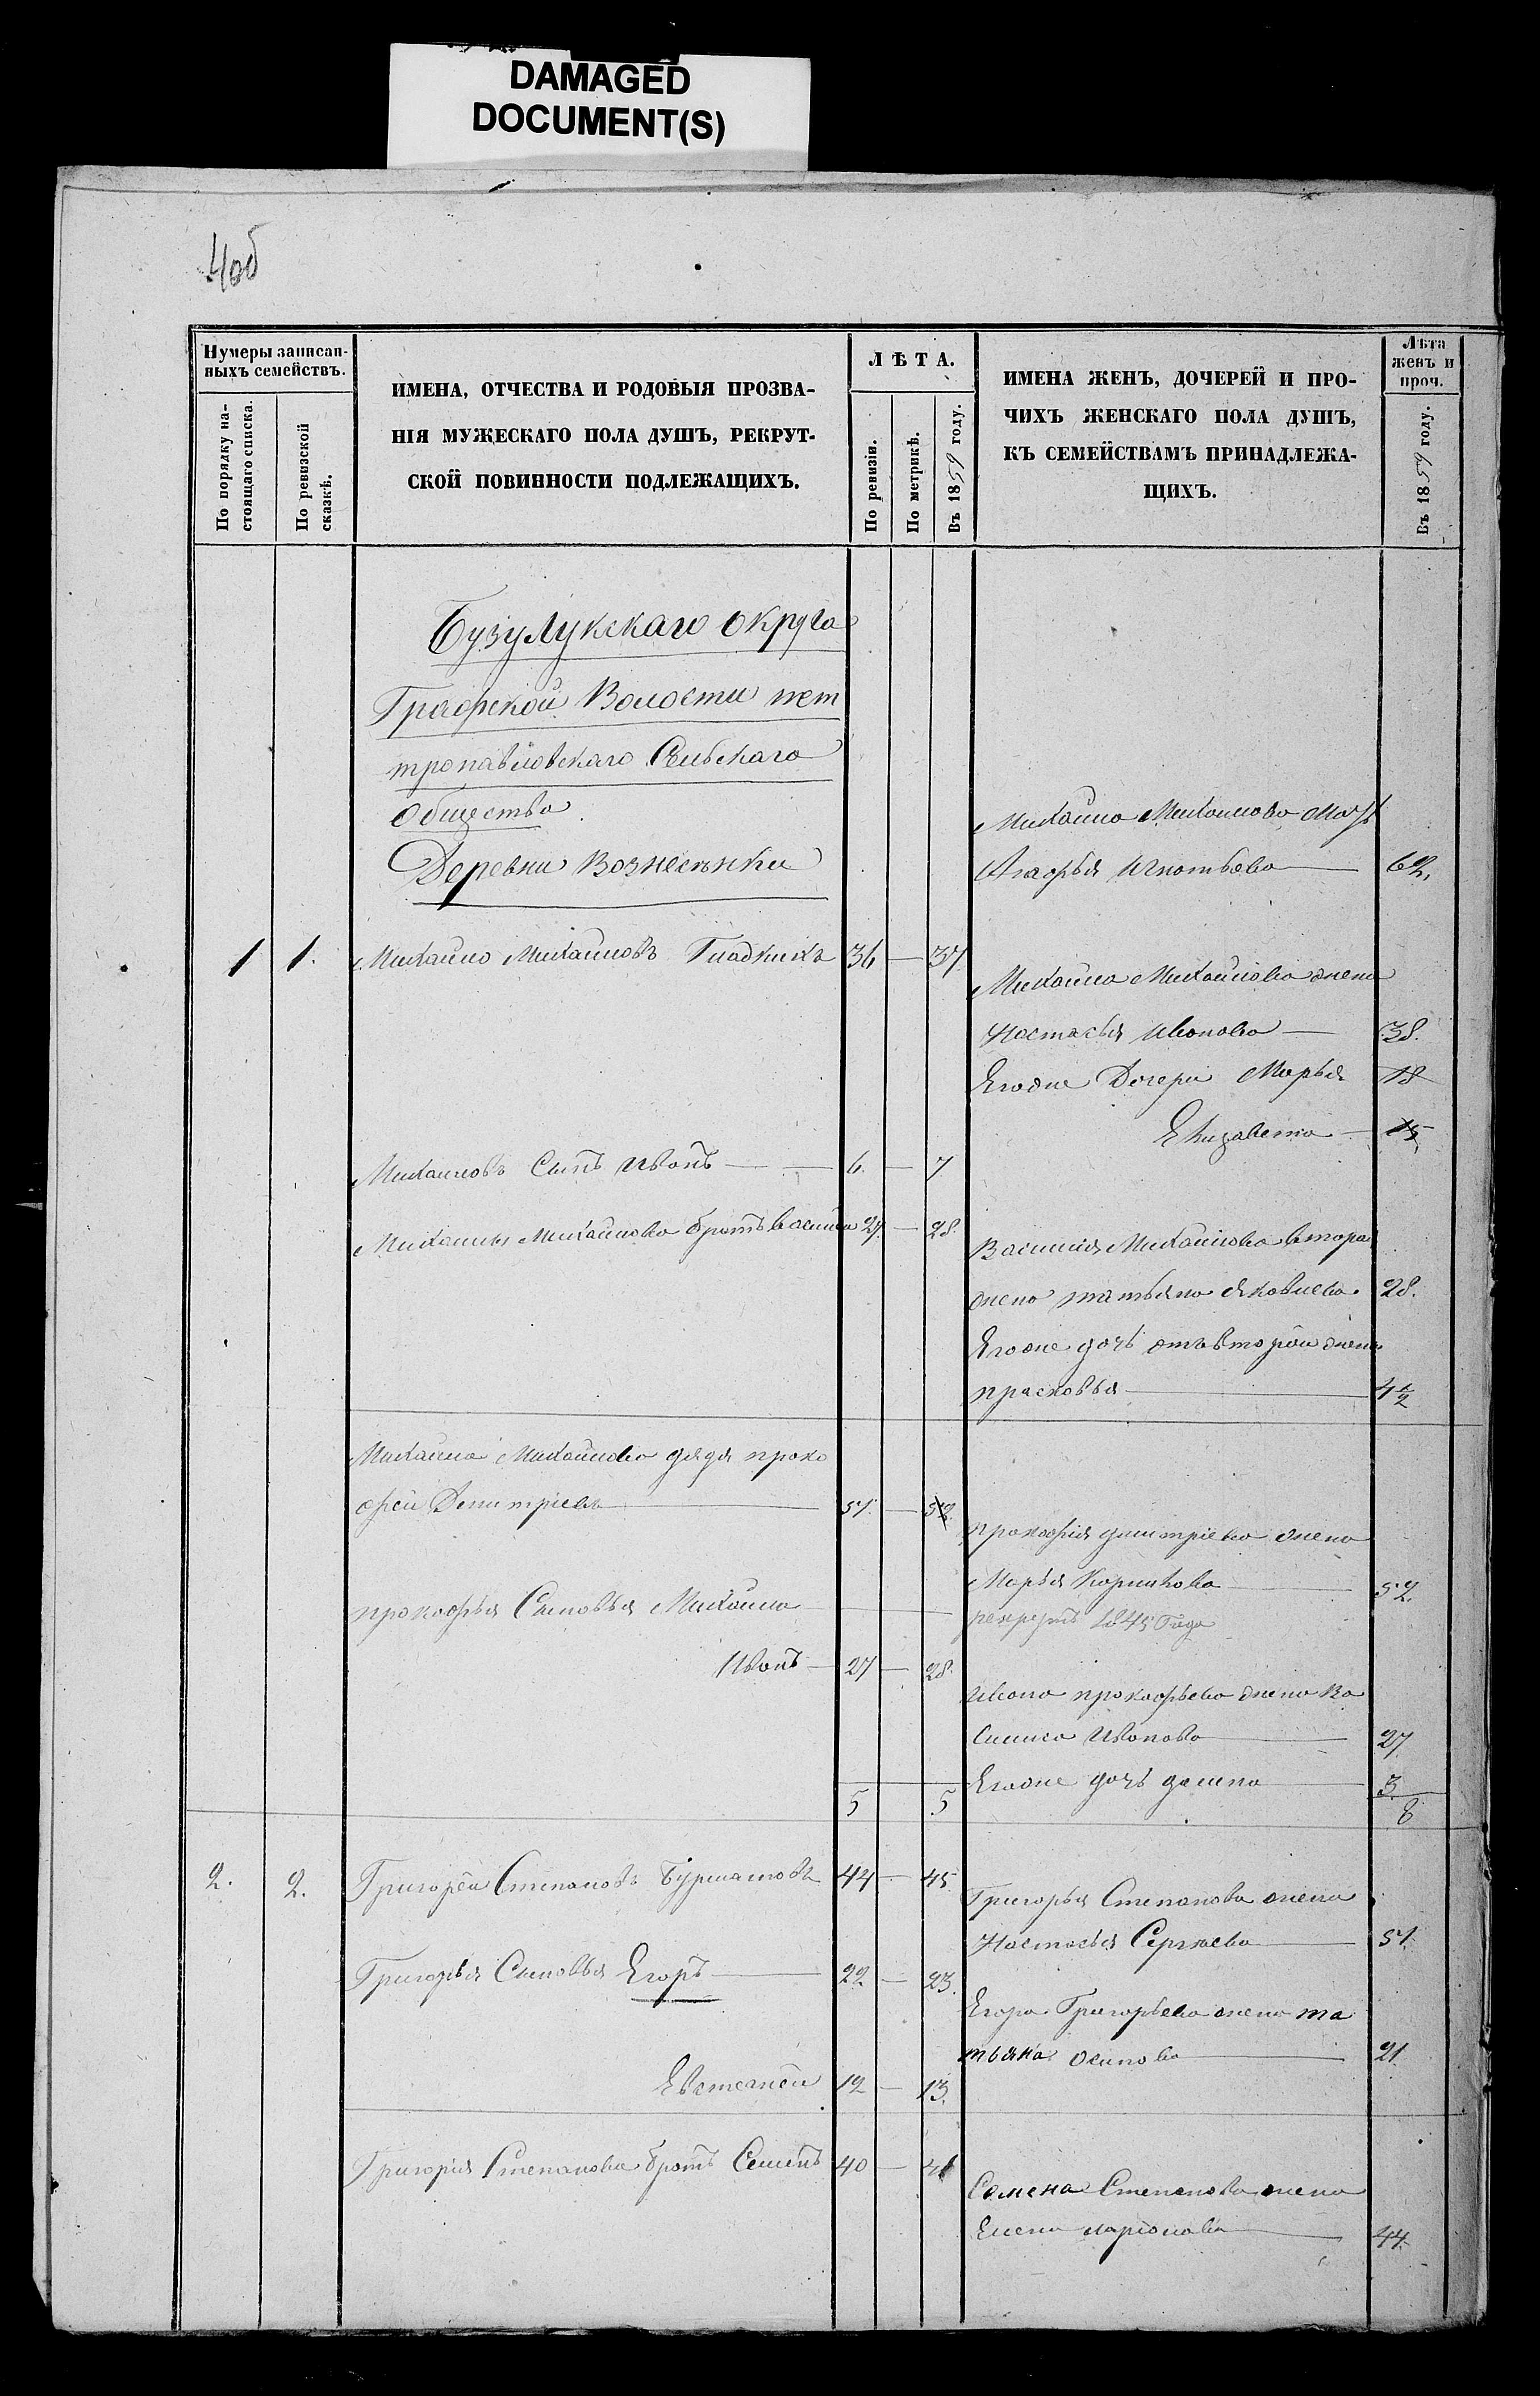 DAMAGED
DOCUMENT(S)
4об
Нумеры записан-
ныхъ семействъ.
По порядку на-
стоящаго списка.
По ревизской
сказкѣ.
ИМЕНА, ОТЧЕСТВА И РОДОВЫЯ ПРОЗВА-
НІЯ МУЖЕСКАГО ПОЛА ДУШЪ, РЕКРУТ-
СКОЙ ПОВИННОСТИ ПОДЛЕЖАЩИХЪ.
ЛѢТА.
По ревизіи.
По метрикѣ.
Въ 1859 году.
ИМЕНА ЖЕНЪ, ДОЧЕРЕЙ И ПРО-
ЧИХЪ ЖЕНСКАГО ПОЛА ДУШЪ,
КЪ СЕМЕЙСТВАМЪ ПРИНАДЛЕЖА-
ЩИХЪ.
Лѣта
женъ и
проч.
Въ 1859 году.
Бузулукскаго округа
Графской Волости пет
тропавловскаго Сельскаго
Общества
Деревни Вознесенки
Михайла Михайлова мать
Агафья Игнатьева — 62.
1 1. Михайло Михайловъ Гладкихъ 36 — 37
Михайла Михайлова жена
Настасья Иванова — 38.
Егоже Дочери Марья 18
Елизавета — 15
Михайловъ Сынъ Иванъ — 6. — 7
Михайлы Михайлова братъ Василий 27. — 28.
Василия Михайлова вторая
жена татьяна яковлева. 28.
Егоже дочь отъ второй жены
прасковья — 4 1/2
Михайла Михайлова дядя проко
фей Демитріевъ — 51. — 52.
прокофія дмитріева жена
Марья Корнилова — 52.
прокофья Сыновья Михайла —
рекрутъ 1845 Года
Иванъ — 27 — 28.
Ивана прокофьева жена Ва
силиса Иванова — 27
Егоже дочь домна — 3
5 5 8
2. 2. Григорей Степановъ Бурматовъ 44 — 45
Григорья Степанова жена
Настасья Сергѣева — 51.
Григорья Сыновья Егоръ — 22 — 23.
Егора Григорьева жена та
тьяна Осипова — 21.
Евстегней 12 — 13.
Григорія Степанова братъ Семенъ 40 — 41
Семена Степанова жена
Елена ларіонова — 44.